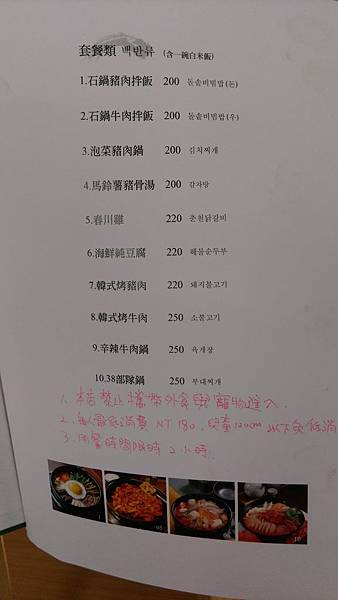 套餐類 백반류 (含一碗白米飯)
1.石鍋豬肉拌飯 200 돌솥비빔밥(돈)
2.石鍋牛肉拌飯 200 돌솥비빔밥(우)
3.泡菜豬肉鍋 200 김치찌개
4.馬鈴薯豬骨湯 200 감자탕
5.春川雞 220 춘천닭갈비
6.海鮮純豆腐 220 해물순두부
7.韓式烤豬肉 220 돼지불고기
8.韓式烤牛肉 250 소불고기
9.辛辣牛肉鍋 250 육개장
10.38部隊鍋 250 부대찌개
1. 本店禁止攜帶外食與寵物進入.
2. 每人最低消費 NT 180. 兒童120cm以下免低消
3. 用餐時間限時 2 小時.
10